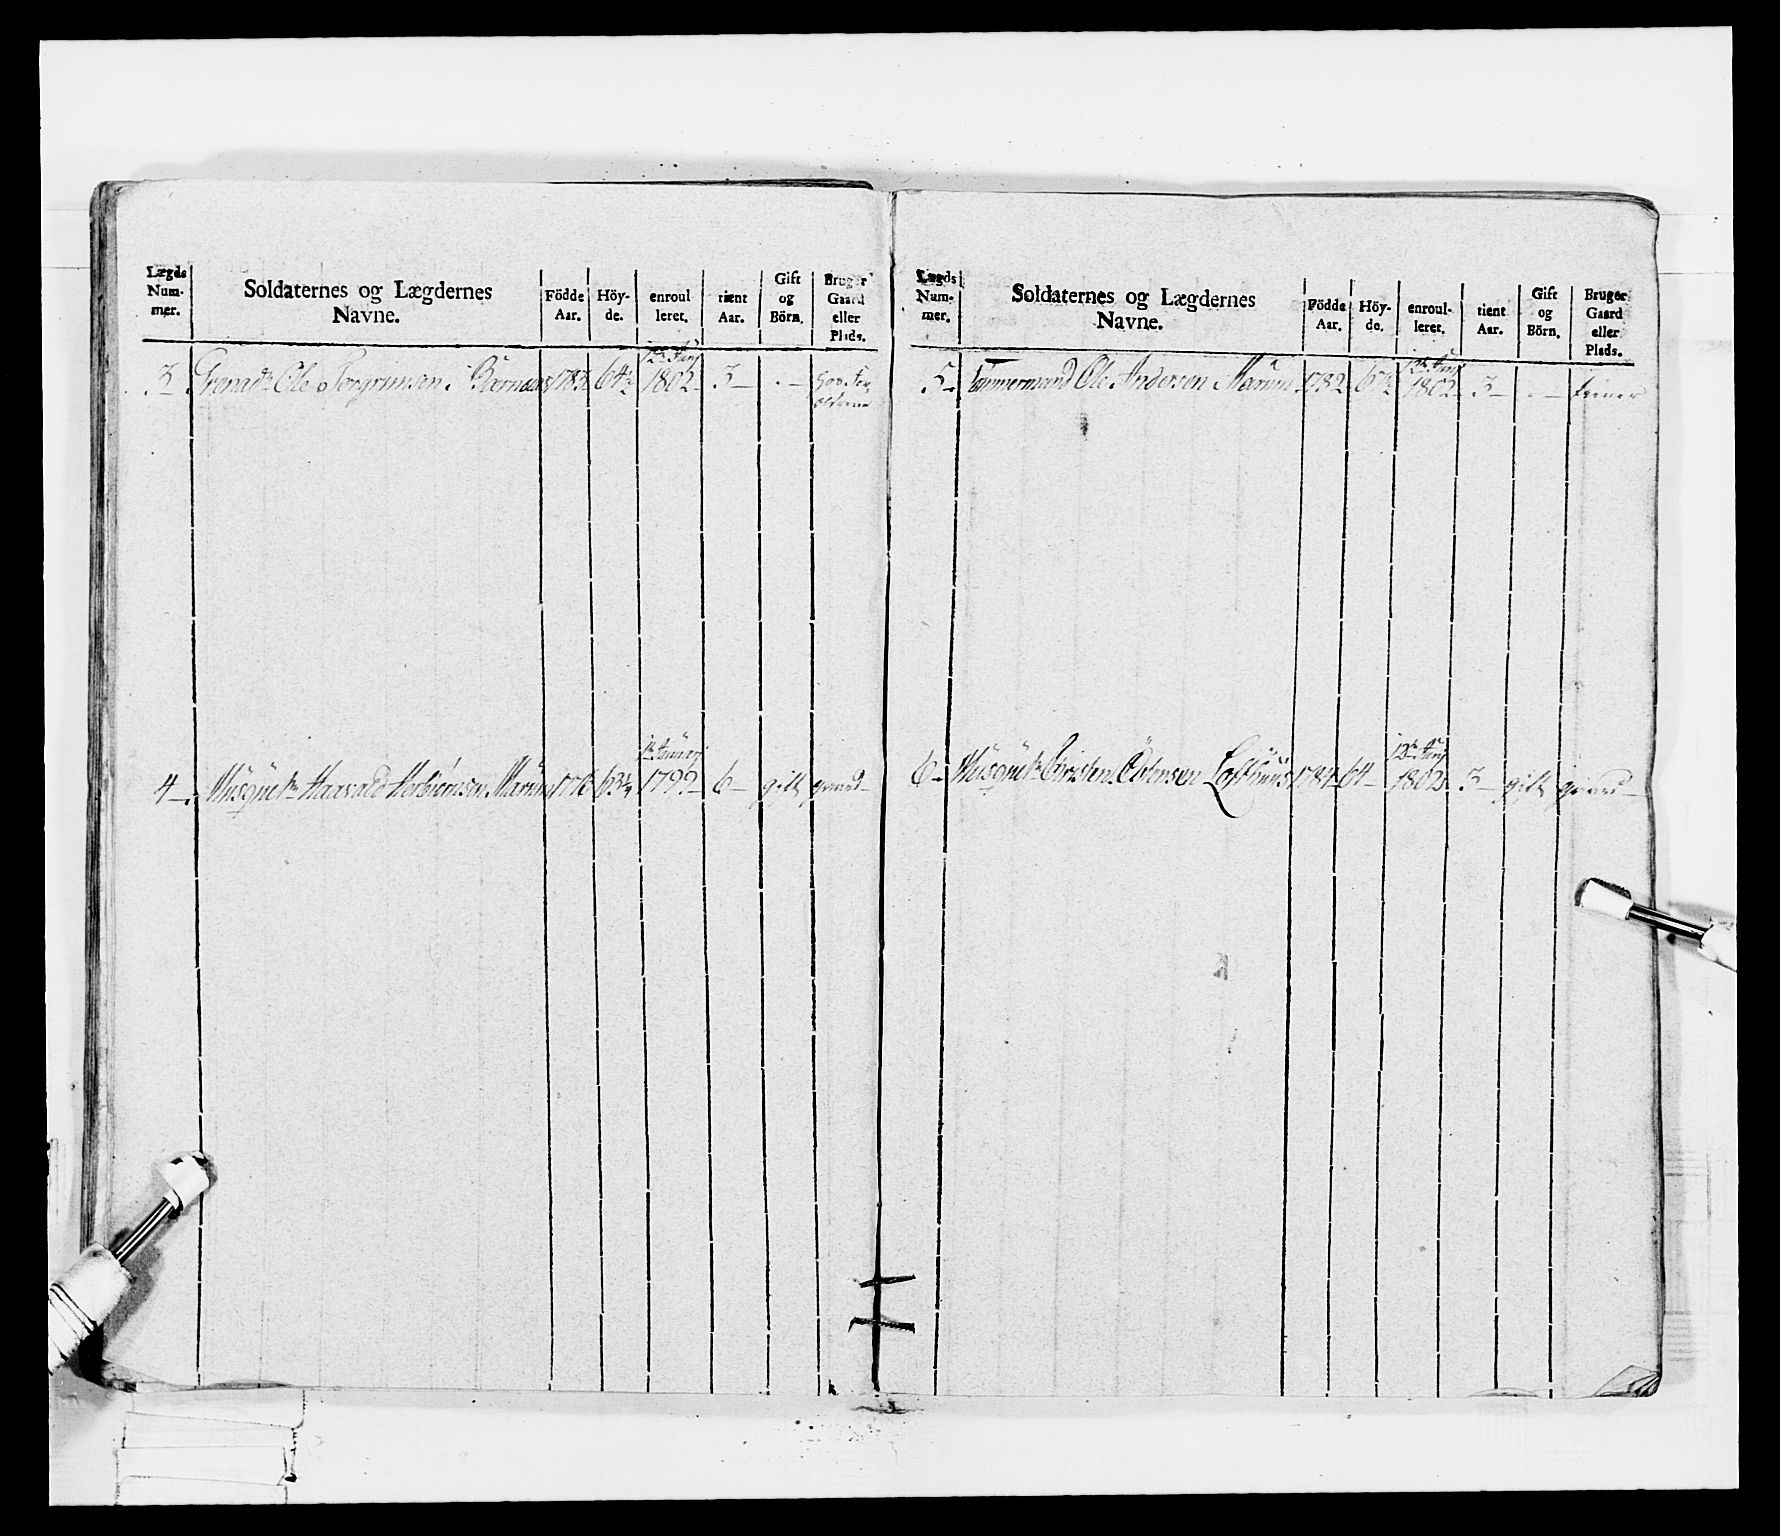 Lægds Num-mer. | Soldaternes og Lægdernes Navne. | Födde Aar. | Höy-de. | enroul leret. | tient Aar. | Gift og Börn. | Bruger Gaard eller Plads.
3 Grenadr Ole Torgrimsen Bærnæs 1783 64½ 12te Junj 1802 3 — . — hos For ældrene
4 Musquetr Haavald Herbiörnsen Marum 1776 63¼ 1te Januarj 1799 6 — gift gaard
Lægds Num-mer. | Soldaternes og Lægdernes Navne. | Födde Aar. | Höy-de. | enroul-leret. | tient Aar. | Gift og Börn. | Bruger Gaard eller Plads.
5 Tømmermand Ole Andersen Marum 1782 67½ 12te Junj 1802 3 — . — tiener
6 Musquetr Christen Östensen Lofthuus 1784 64 12te Junj 1802 3 — gift gaard